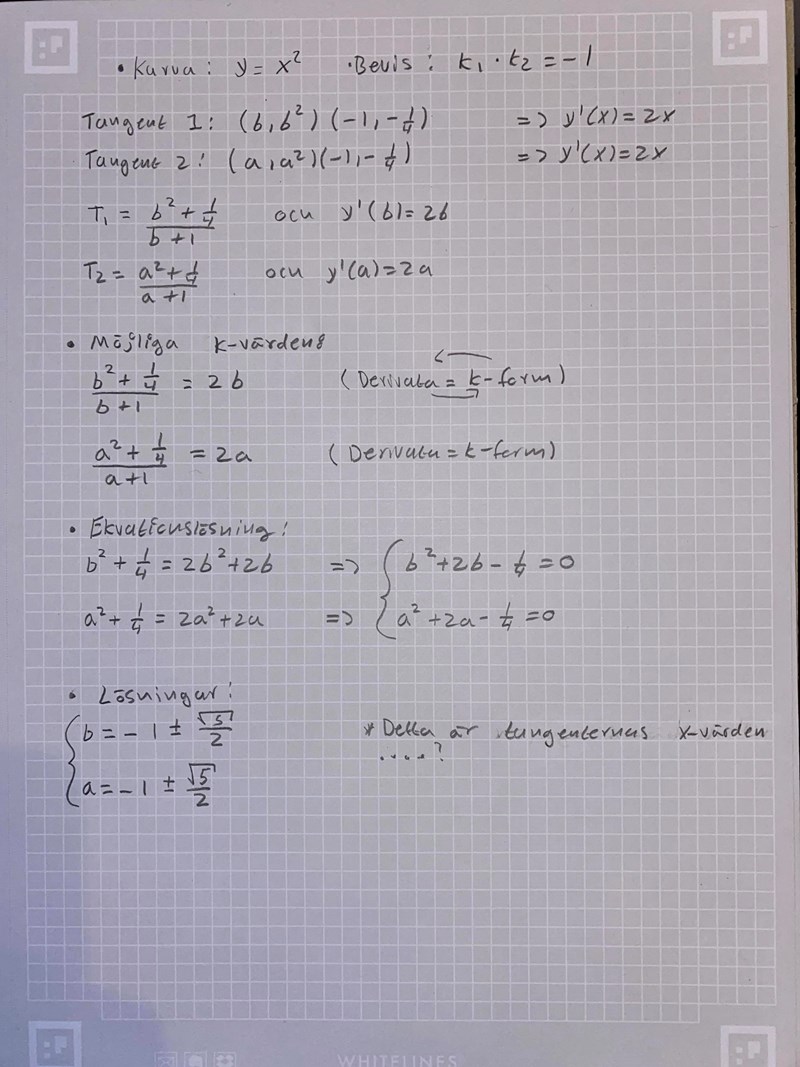 • Kurva: y = x² • Bevis: k₁ · k₂ = -1
Tangent 1: (b, b²) (-1, -1/4) => y'(x) = 2x
Tangent 2: (a, a²)(-1, -1/4) => y'(x) = 2x
T₁ = (b² + 1/4)/(b + 1) och y'(b) = 2b
T₂ = (a² + 1/4)/(a + 1) och y'(a) = 2a
• Möjliga k-värden:
(b² + 1/4)/(b + 1) = 2b (Derivata = k-form)
(a² + 1/4)/(a + 1) = 2a (Derivata = k-form)
• Ekvationslösning:
b² + 1/4 = 2b² + 2b => { b² + 2b - 1/4 = 0
a² + 1/4 = 2a² + 2a => { a² + 2a - 1/4 = 0
• Lösningar:
{ b = -1 ± √5/2 * Detta är tangenternas x-värden
....?
{ a = -1 ± √5/2
WHITELINES